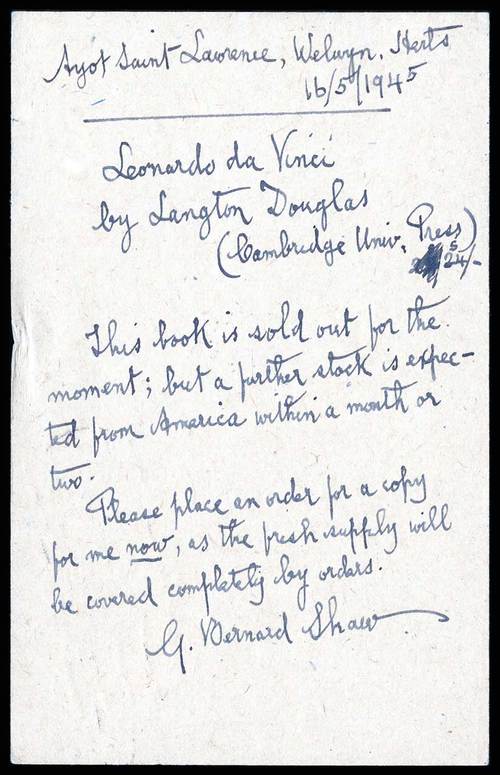 Ayot Saint Lawrence, Welwyn, Herts
16/5/1945
Leonardo da Vinci
by Langton Douglas
(Cambridge Univ. Press)
24/-
This book is sold out for the
moment; but a further stock is expec-
ted from America within a month or
two.
Please place an order for a copy
for me now, as the fresh supply will
be covered completely by orders.
G. Bernard Shaw